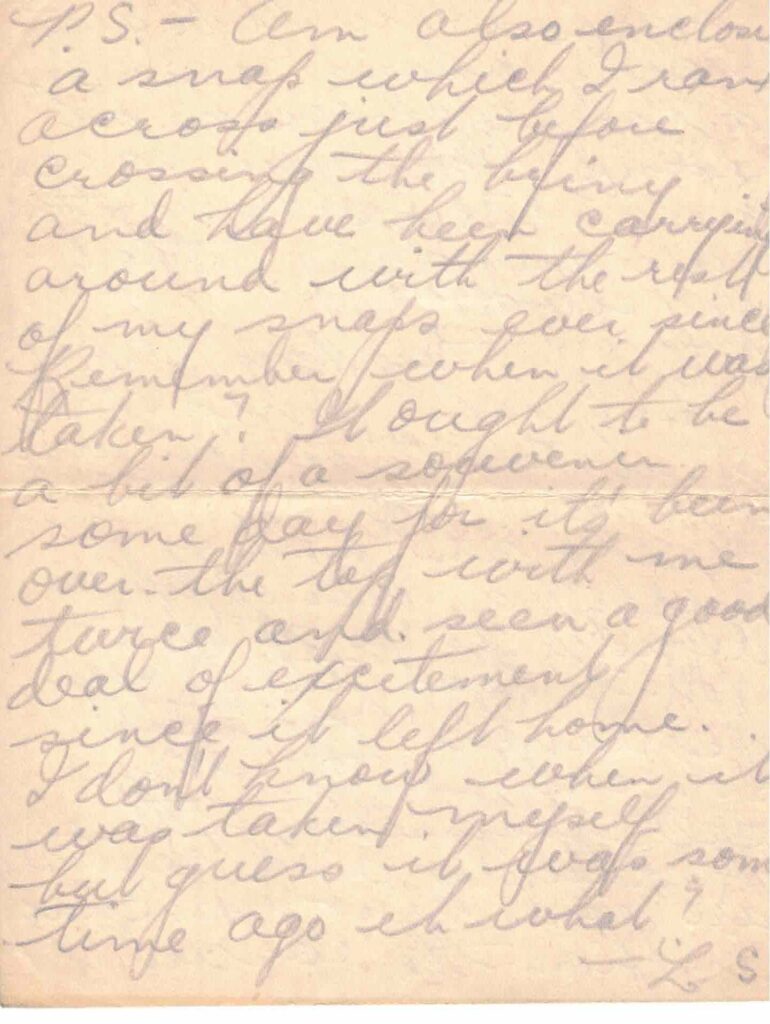 P.S. - Am also enclosi
a snap which I ran
across just before
crossing the briny
and have been carrying
around with the rest
of my snaps ever since
Remember when it was
taken? It ought to be
a bit of a souvenir
some day for it's been
over the top with me
twice and seen a good
deal of excitement
since it left home.
I don't know when it
was taken myself
but guess it was som
time ago eh what?
- L S